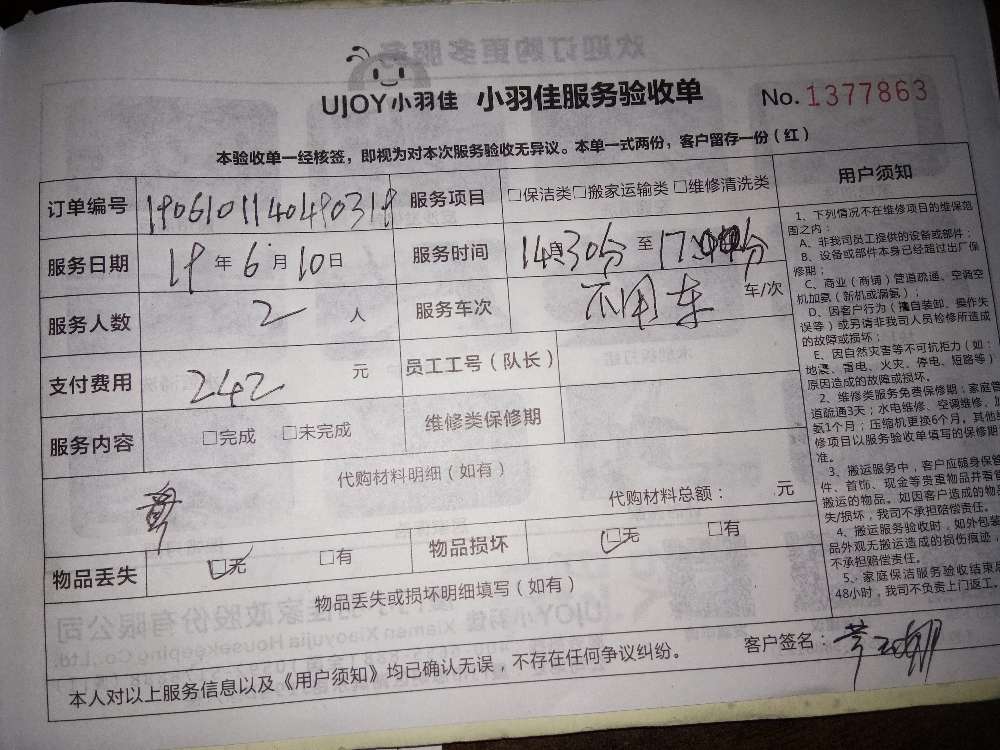 UJOY小羽佳 小羽佳服务验收单 No. 1377863
本验收单一经核签，即视为对本次服务验收无异议。本单一式两份，客户留存一份（红）
订单编号 服务项目 □保洁类□搬家运输类□维修清洗类
服务日期 19年6月10日 服务时间 14时30分至17
服务人数 2人 服务车次 不用车 车/次
支付费用 242元 员工工号（队长）
服务内容 □完成 □未完成 维修类保修期
代购材料明细（如有）
代购材料总额： 元
物品丢失 □无 □有 物品损坏 □无 □有
物品丢失或损坏明细填写（如有）
本人对以上服务信息以及《用户须知》均已确认无误，不存在任何争议纠纷。 客户签名：
用户须知
1、下列情况不在维修项目的维保范
围之内：
A、非我司员工提供的设备或部件；
B、设备或部件本身已经超过出厂保
修期；
C、商业（商铺）管道疏通、空调空
机加氨（新机或漏氨）；
D、因客户行为（擅自装卸、操作失
误等）或另请非我司人员检修所造成
的故障或损坏；
E、因自然灾害等不可抗拒力（如：
地震、雷电、火灾、停电、短路等）
原因造成的故障或损坏。
2、维修类服务免费保修期：家庭管
道疏通3天；水电维修、空调维修、加
氨1个月；压缩机更换6个月。其他
修项目以服务验收单填写的保修期
准。
3、搬运服务中，客户应随身保管
件、首饰、现金等贵重物品并看管
搬运的物品。如因客户造成的物品
失/损坏，我司不承担赔偿责任。
4、搬运服务验收时，如外包装
品外观无搬运造成的损伤痕迹，
不承担赔偿责任。
5、家庭保洁服务验收结束后
48小时，我司不负责上门返工。